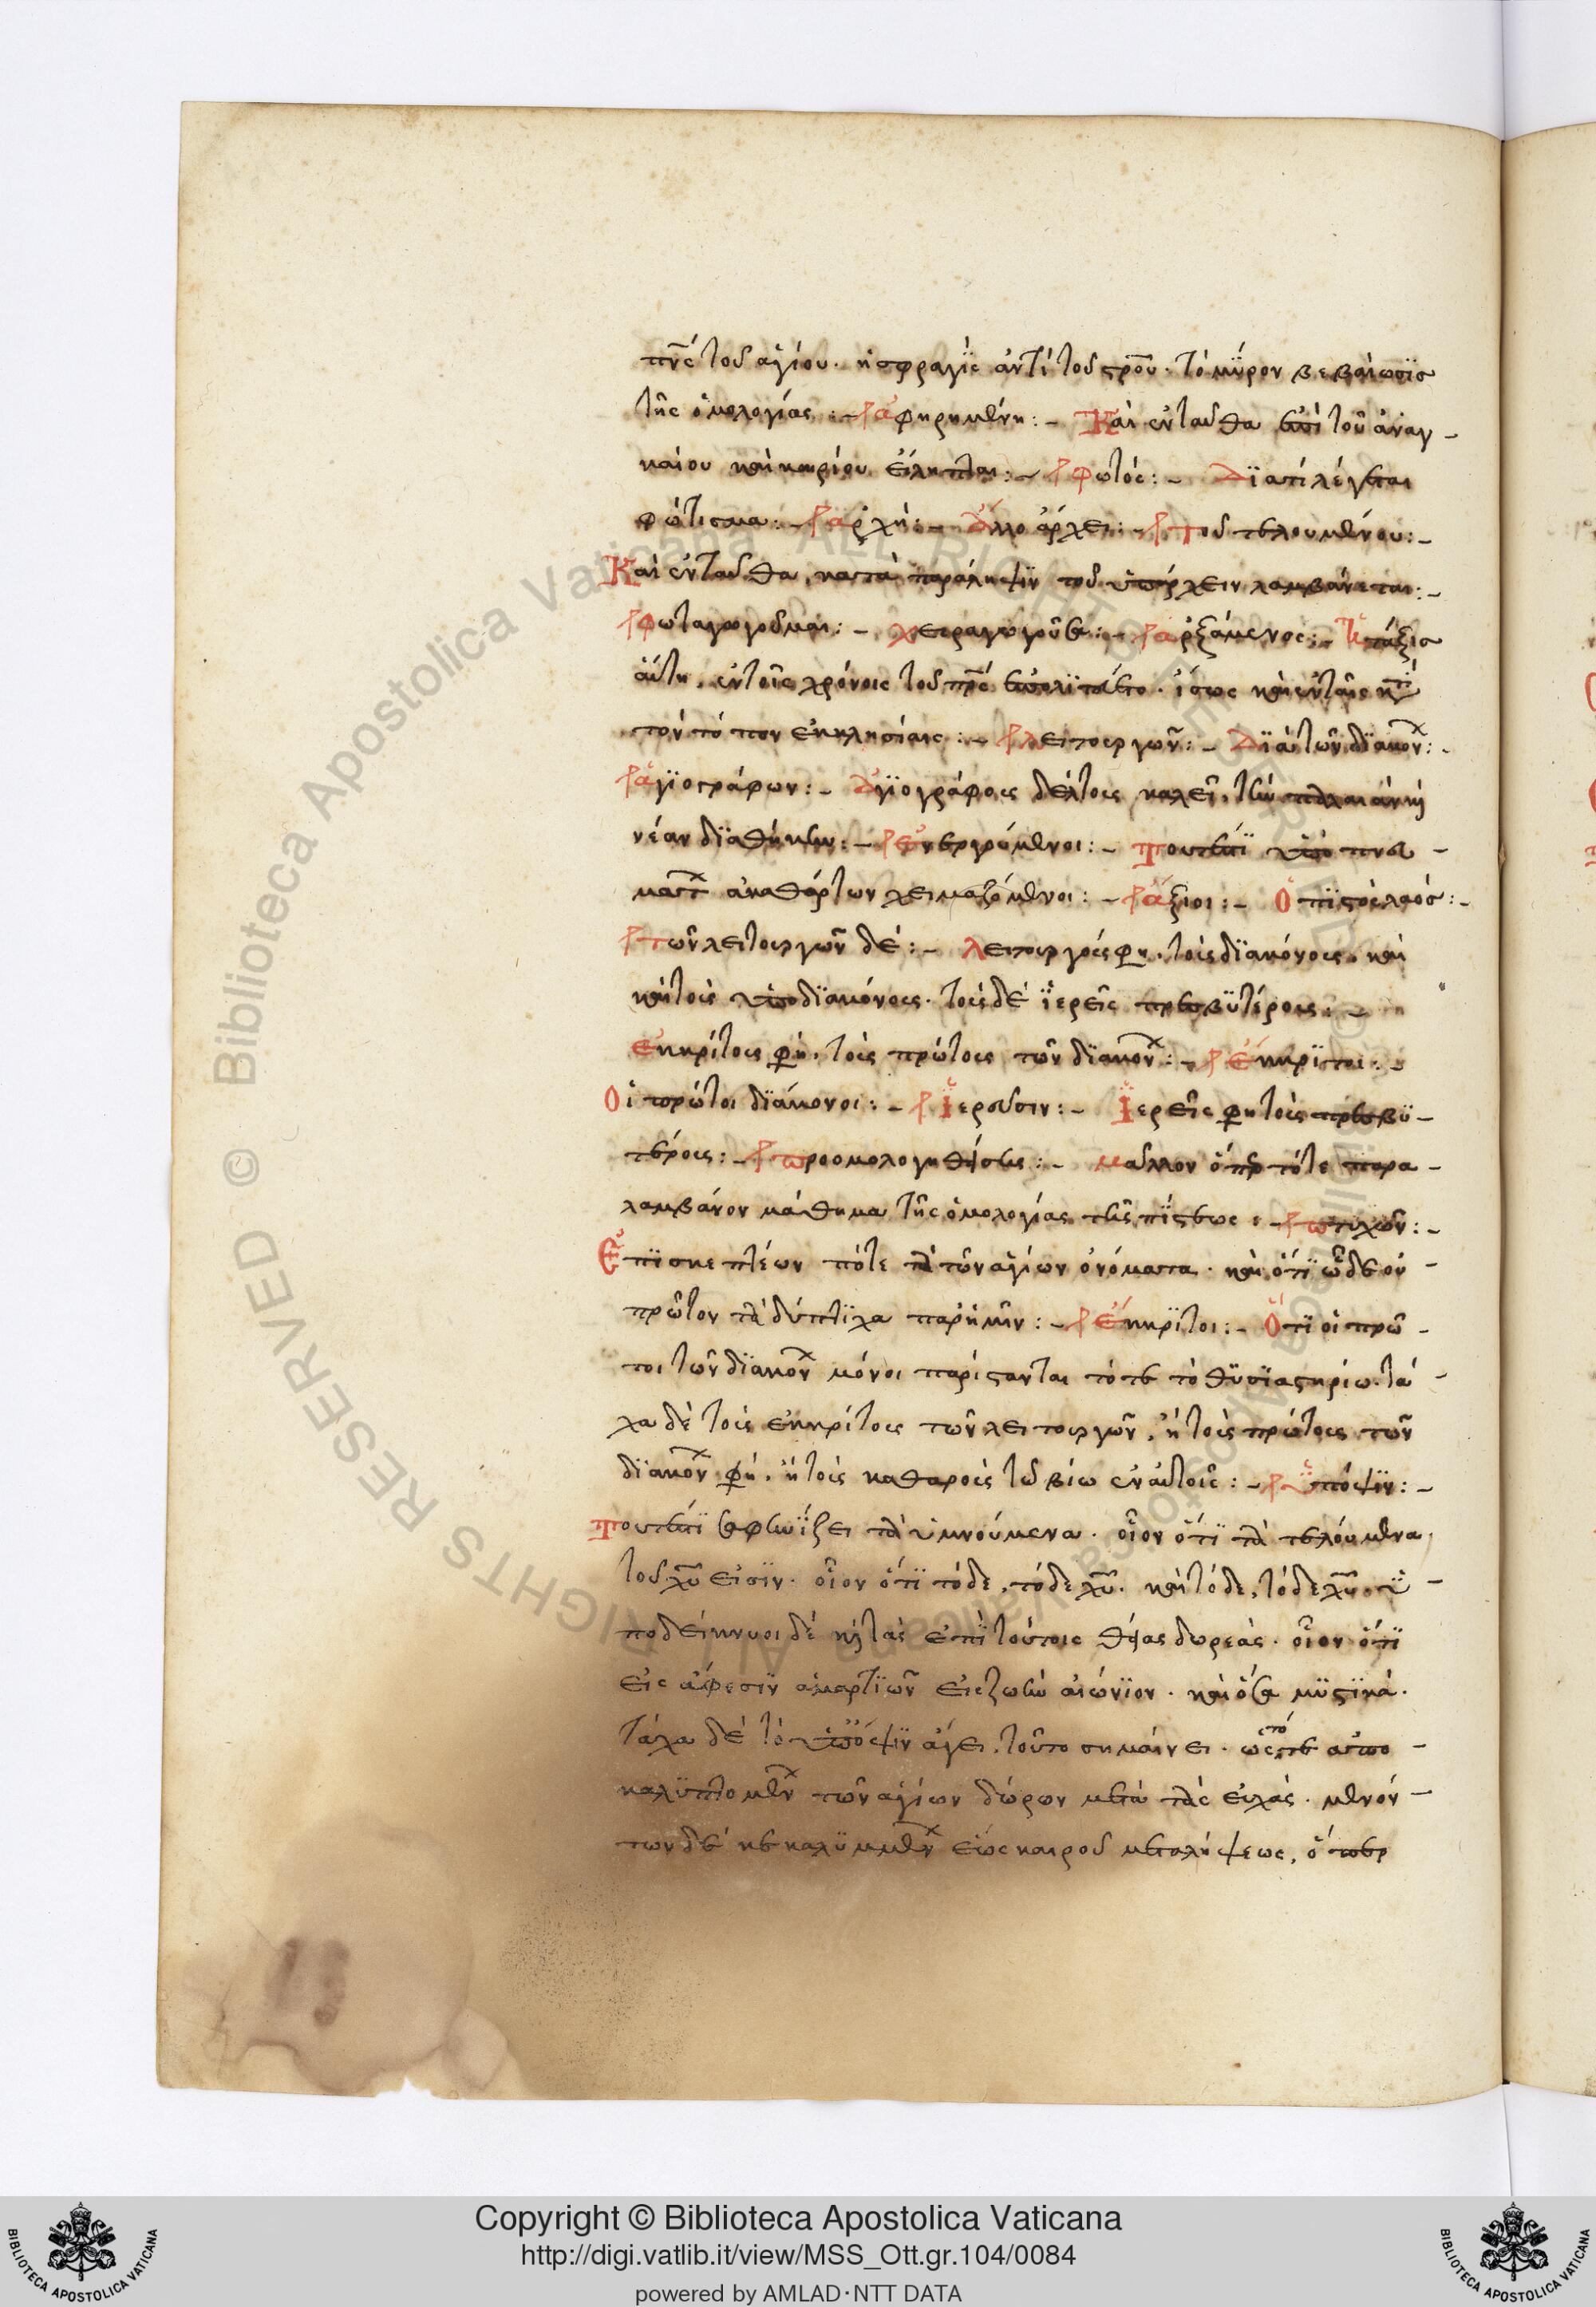 πν̅ς τοῦ ἁγίου. ἡ σφραγὶς ἀντὶ τοῦ στρο̅υ. τὸ μύρον βεβαίωσϊσ
τῆς ὁμολογίας :– ἀφηρημένη :– Καὶ ἐνταῦθα ἐπὶ τοῦ ἀναγ–
καίου καὶ καιρίου εἴληπται :– φωτός :– Δϊατί λέγεται
φώτισμα :– ἀρχή :– ἄλλο ἄρχει :– τοῦ τελουμένου :–
Καὶ ἐνταῦθα κατὰ παράληψϊν τοῦ ὑπάρχειν λαμβάνεται :–
φωταγωγοῦμαι :– χειραγωγοῦσα :– ἀρξάμενος :– Ἡ τάξισ
αὕτη, ἐν τοῖς χρόνοις τοῦ πρ̅ς ἐπολϊτεύετο. ἴσως καὶ ἐν ταῖς κατὰ
τόν τόπον ἐκκλησίαις :– λειτουργῶν :– Δϊὰ τῶν δϊακον :–
ἁγϊογράφων :– Ἁγϊογράφοις δέλτοις καλεῖ, τὴν παλαιάν καὶ
νέαν δϊαθήκην :– ἐνεργούμενοι :– Τουτέστϊ ὑπὸ πνευ–
μάτ ἀκαθάρτων χειμαζόμενοι :– ἄξιοι :– Ὅτϊ πρὸς λαόσ :–
τῶν λειτουργῶν δέ :– λειτουργούς φη, τοὺς δϊακόνους, καὶ
καὶ τοὺς ὑποδϊακόνους. τοὺς δὲ ἱερεῖς πρεσβϋτέρους :–
ἐκκρίτους φη, τοὺς πρώτους τῶν δϊακον :– ἔκκρϊτοι :–
Οἱ πρῶτοι δϊάκονοι :– ἱεροῦσιν :– Ἱερεῖς φη τοὺς πρεσβϋ–
τέρους :– προομολογηθείσης :– μᾶλλον ὅπερ τότε παρα–
λαμβάνον μάθημα τῆς ὁμολογίας τῆς πίστεως :– πτυχῶν :–
Ἐπϊσκεπτέων πότε τὰ τῶν ἁγίων ὀνόματα. καὶ ὅτϊ ὧδε οὐ–
πρῶτον τὰ δύπτϊχα παρ' ἡμῖν :– ἔκκρϊτοι :– Ὅτϊ οἱ πρῶ–
τοι τῶν δϊακον μόνοι παρίστανται τότε τὸ θϋσϊαστηρίω. τά–
χα δὲ τοὺς ἐκκρίτους τῶν λειτουργῶν, ἢ τοὺς πρώτους τῶν
δϊακον φη. ἢ τοὺς καθαροὺς τῶ βίω ἐν αὐτοῖς :– ὑπόψϊν :–
Τουτέστϊ ἐμφανϊζει τὰ ὑμνούμενα. οἷον ὅτϊ τὰ τελούμενα,
τοῦ χυ̅ εἰσϊν. οἷον ὅτϊ τόδε, τόδε χυ̅. καὶ τόδε, τόδε χυ̅. ὑ–
ποδείκνυσι δὲ καὶ τὰς ἐπὶ τούτοις θείας δωρεάς. οἷον ὅτϊ
εἰς ἄφεσϊν ἁμαρτϊῶν εἰς ζωὴν αἰώνϊον. καὶ ὅσα μϋστϊκά.
τάχα δὲ τὸ ὑπόψϊν ἄγει, τοῦτο σημαίνει. ὥς τό τε ἀπο–
καλϋπτομέν τῶν ἁγίων δώρων μετὰ τὰς εὐχάς. μενόν–
των δὲ κεκαλϋμμέν ἕως καιροῦ μεταλήψεως, ὅπερ